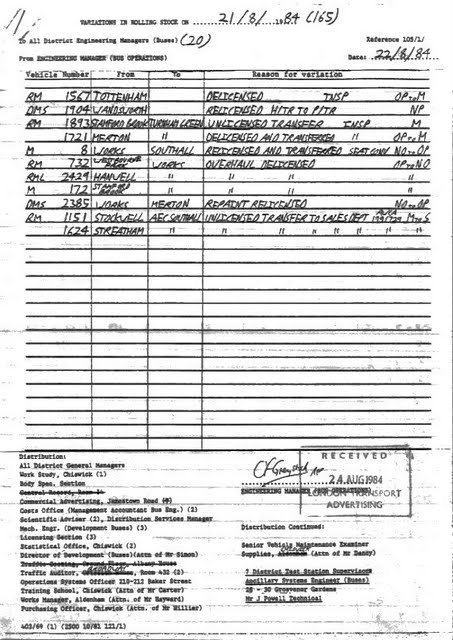 VARIATIONS IN ROLLING STOCK ON 21/8/1984 (165)
To All District Engineering Managers (Buses) (20) Reference 105/1/
From ENGINEERING MANAGER (BUS OPERATIONS) Date: 22/8/84
Vehicle Number From To Reason for variation
RM 1567 TOTTENHAM DELICENSED INSP OP to M
DMS 1904 WANDSWORTH RELICENSED H/TR TO P/TR NP
RM 1893 STAMFORD BROOK TURNHAM GREEN UNLICENSED TRANSFER INSP M
1721 MERTON DELICENSED AND TRANSFERRED " OP to M
M 8 WORKS SOUTHALL RELICENSED AND TRANSFERRED SEAT CONV NO to OP
RM 732 WESTBOURNE PARK WORKS OVERHAUL DELICENSED OP to NO
RML 2429 HANWELL " " " "
M 172 STAMFORD BROOK " " " "
DMS 2385 WORKS MERTON REPAINT RELICENSED NO to OP
RM 1151 STOCKWELL AEC SOUTHALL UNLICENSED TRANSFER TO SALES DEPT M to S
1624 STREATHAM " " " " " " "
Distribution:
All District General Managers
Work Study, Chiswick (1)
Body Spec. Section
General Record, Room
Commercial Advertising, Jamestown Road
Costs Office (Management Accountant Bus Eng.) (2)
Scientific Adviser (2), Distribution Services Manager
Mech. Engr. (Development Buses) (3)
Licensing Section (3)
Statistical Office, Chiswick (2)
Director of Development (Buses)(Attn of Mr Simon)
Traffic Costing, Ground Floor, Albany House
Traffic Auditor, Room 432 (2)
Operations Systems Officer 210-212 Baker Street
Training School, Chiswick (Attn of Mr Carter)
Works Manager, Aldenham (Attn. of Mr Hayward)
Purchasing Officer, Chiswick (Attn. of Mr Willier)
403/69 (1) (2500 10/81 121/1)
ENGINEERING MANAGER (BUS OPERATIONS)
RECEIVED
24 AUG 1984
LONDON TRANSPORT
ADVERTISING
Distribution Continues:
Senior Vehicle Maintenance Examiner
Supplies, (Attn of Mr Danby)
7 District Test Station Supervisors
Ancillary Systems Engineer (Buses)
28 - 30 Grosvenor Gardens
Mr J Powell Technical